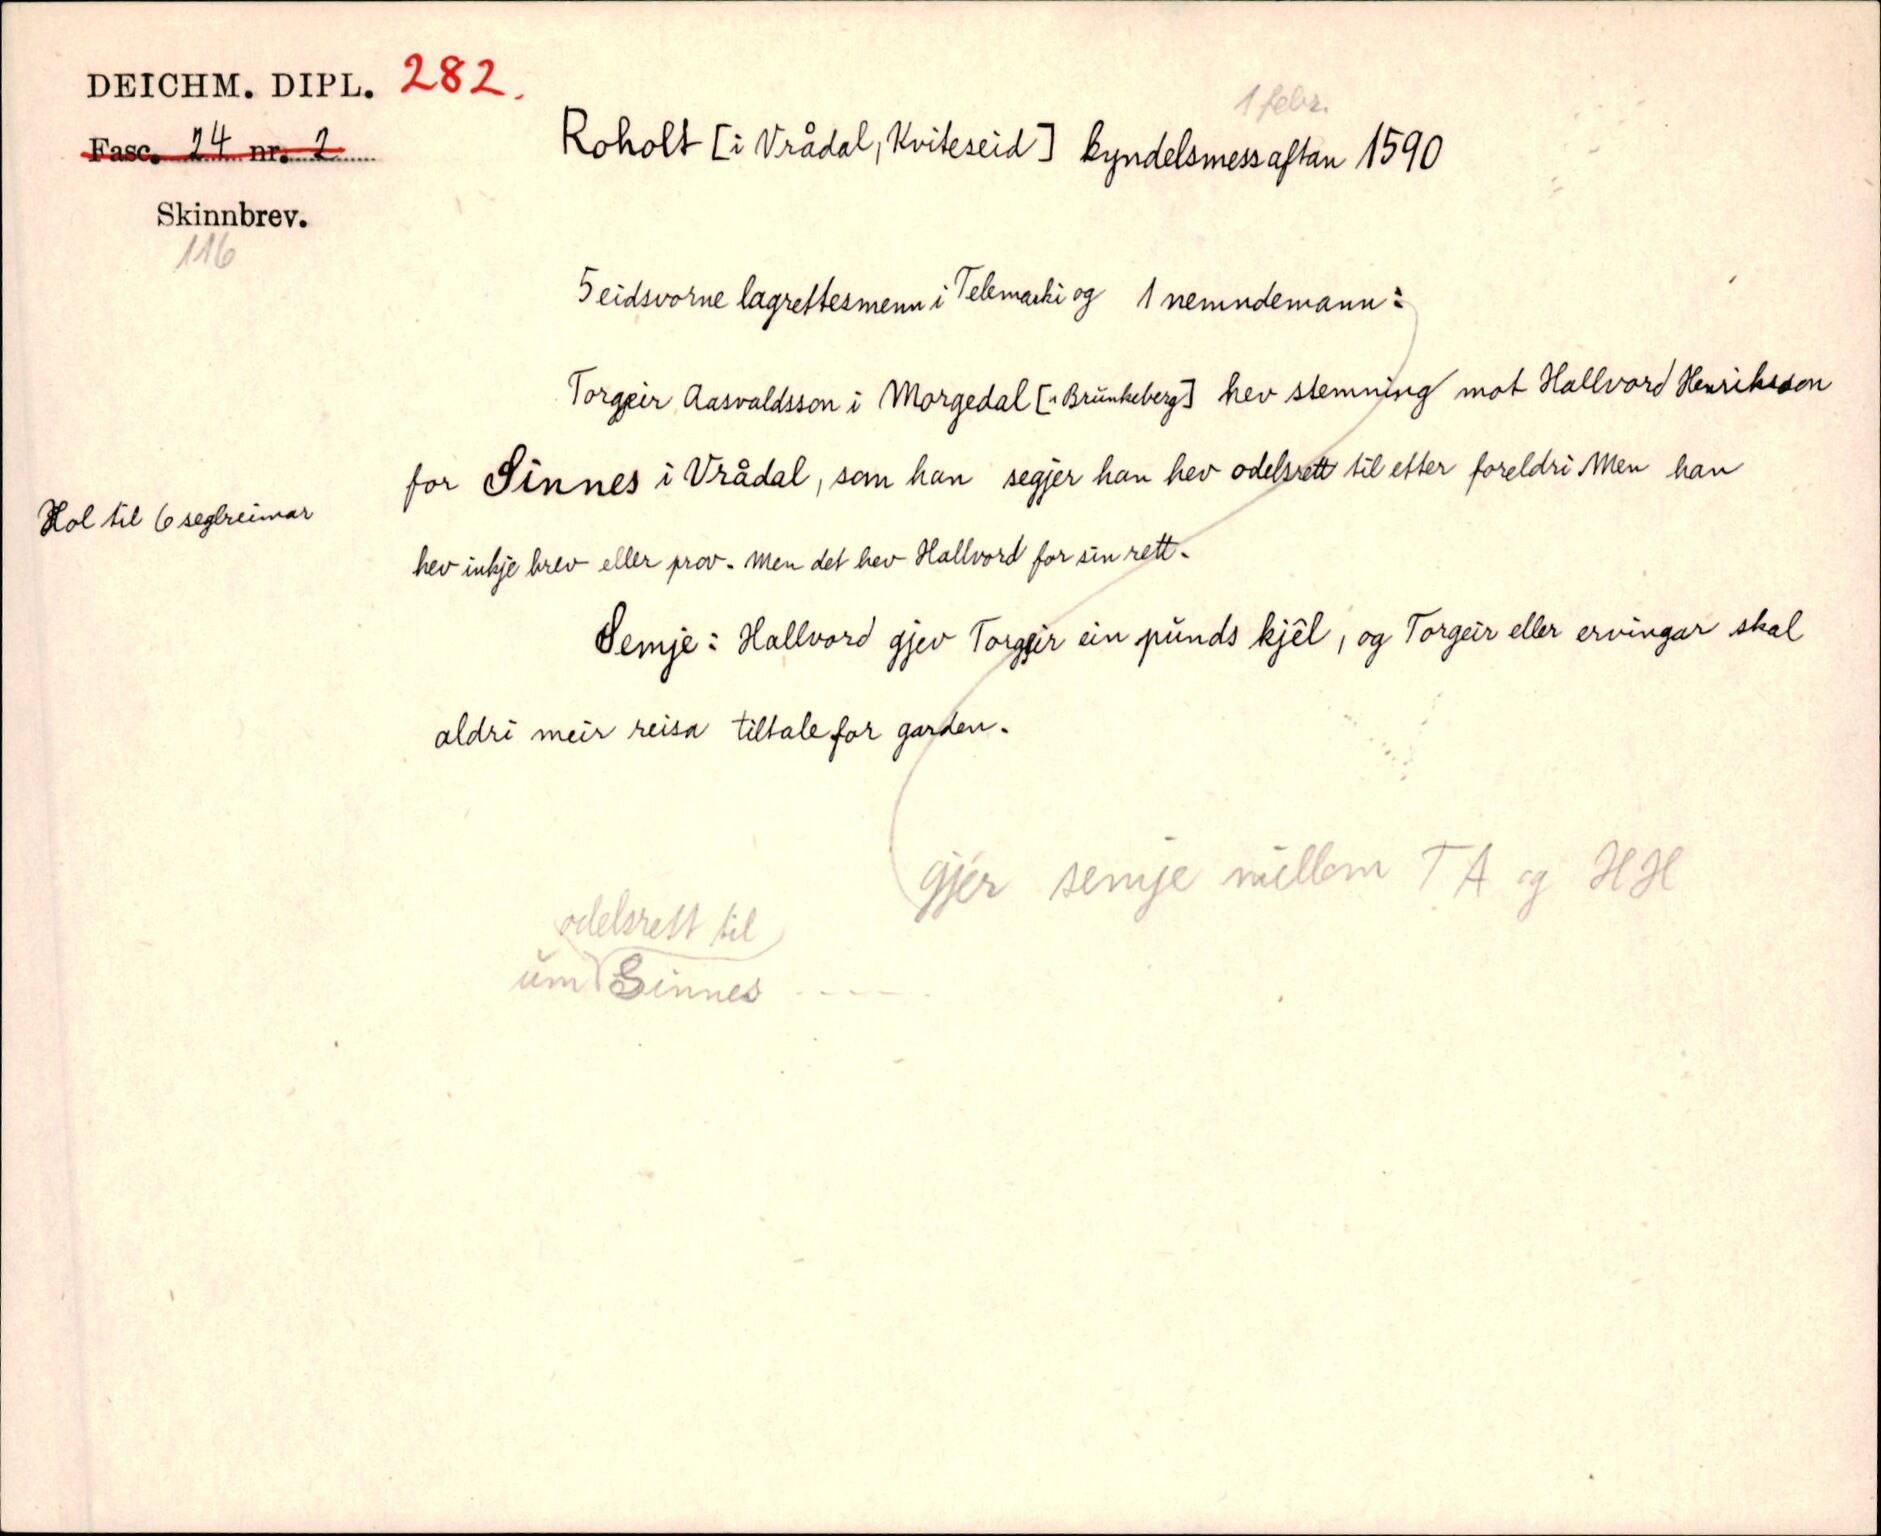 DEICHM. DIPL. 282.
Fasc. 24 nr. 2
Skinnbrev.
116
1 febr.
Roholt [i Vrådal, Kviteseid] kyndelsmessaftan 1590
5 eidsvorne lagrettesmenn i Telemarki og 1 nemndemann:
Torgeir Aasvaldsson i Morgedal [i Brŭnkeberg] hev stemning mot Hallvord Henriksson
for Sinnes i Vrådal, som han segjer han hev odelsrett til etter foreldri Men han
Hol til 6 seglreimar
hev inkje brev eller prov. Men det hev Hallvord for sin rett.
Semje: Hallvord gjev Torgeir ein pŭnds kjêl, og Torgeir eller ervingar skal
aldri meir reisa tiltale for garden.
gjer semje millom T A og H H
odelsrett til
ŭm Sinnes - - - - -